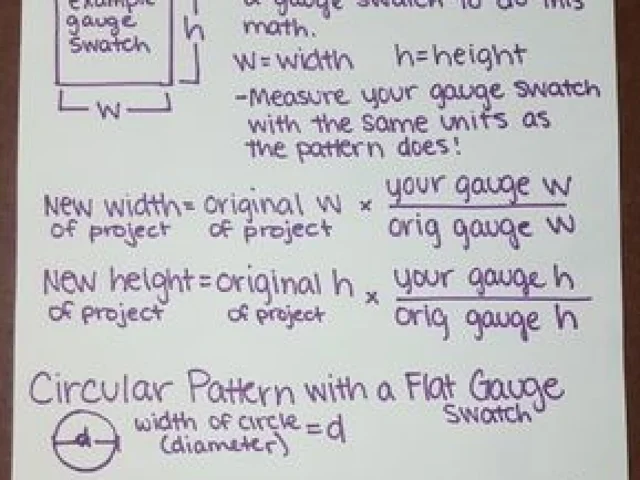 example
gauge
swatch
h
w
a gauge swatch to do this
math.
w=width h=height
-Measure your gauge swatch
with the same units as
the pattern does!
New width= original w × your gauge w
of project of project orig gauge w
New height=original h × your gauge h
of project of project orig gauge h
Circular Pattern with a Flat Gauge
Swatch
d
width of circle = d
(diameter)